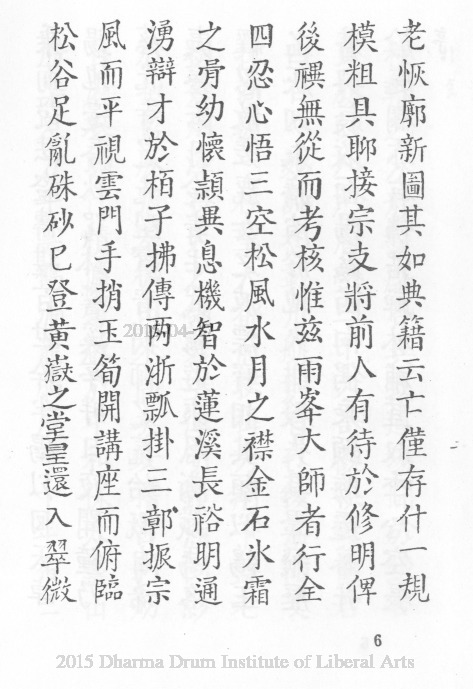 老恢廓新圖其如典籍云亡僅存什一規
模粗具聊接宗支將前人有待於修明俾
後禩無從而考核惟兹雨峯大師者行全
四忍心悟三空松風水月之襟金石氷霜
之骨幼懷頴異息機智於蓮溪長裕明通
湧辯才於栢子拂傳两浙瓢掛三鄣振宗
風而平視雲門手捎玉筍開講座而俯臨
松谷足亂硃砂巳登黃嶽之堂皇還入翠微
6
2015 Dharma Drum Institute of Liberal Arts